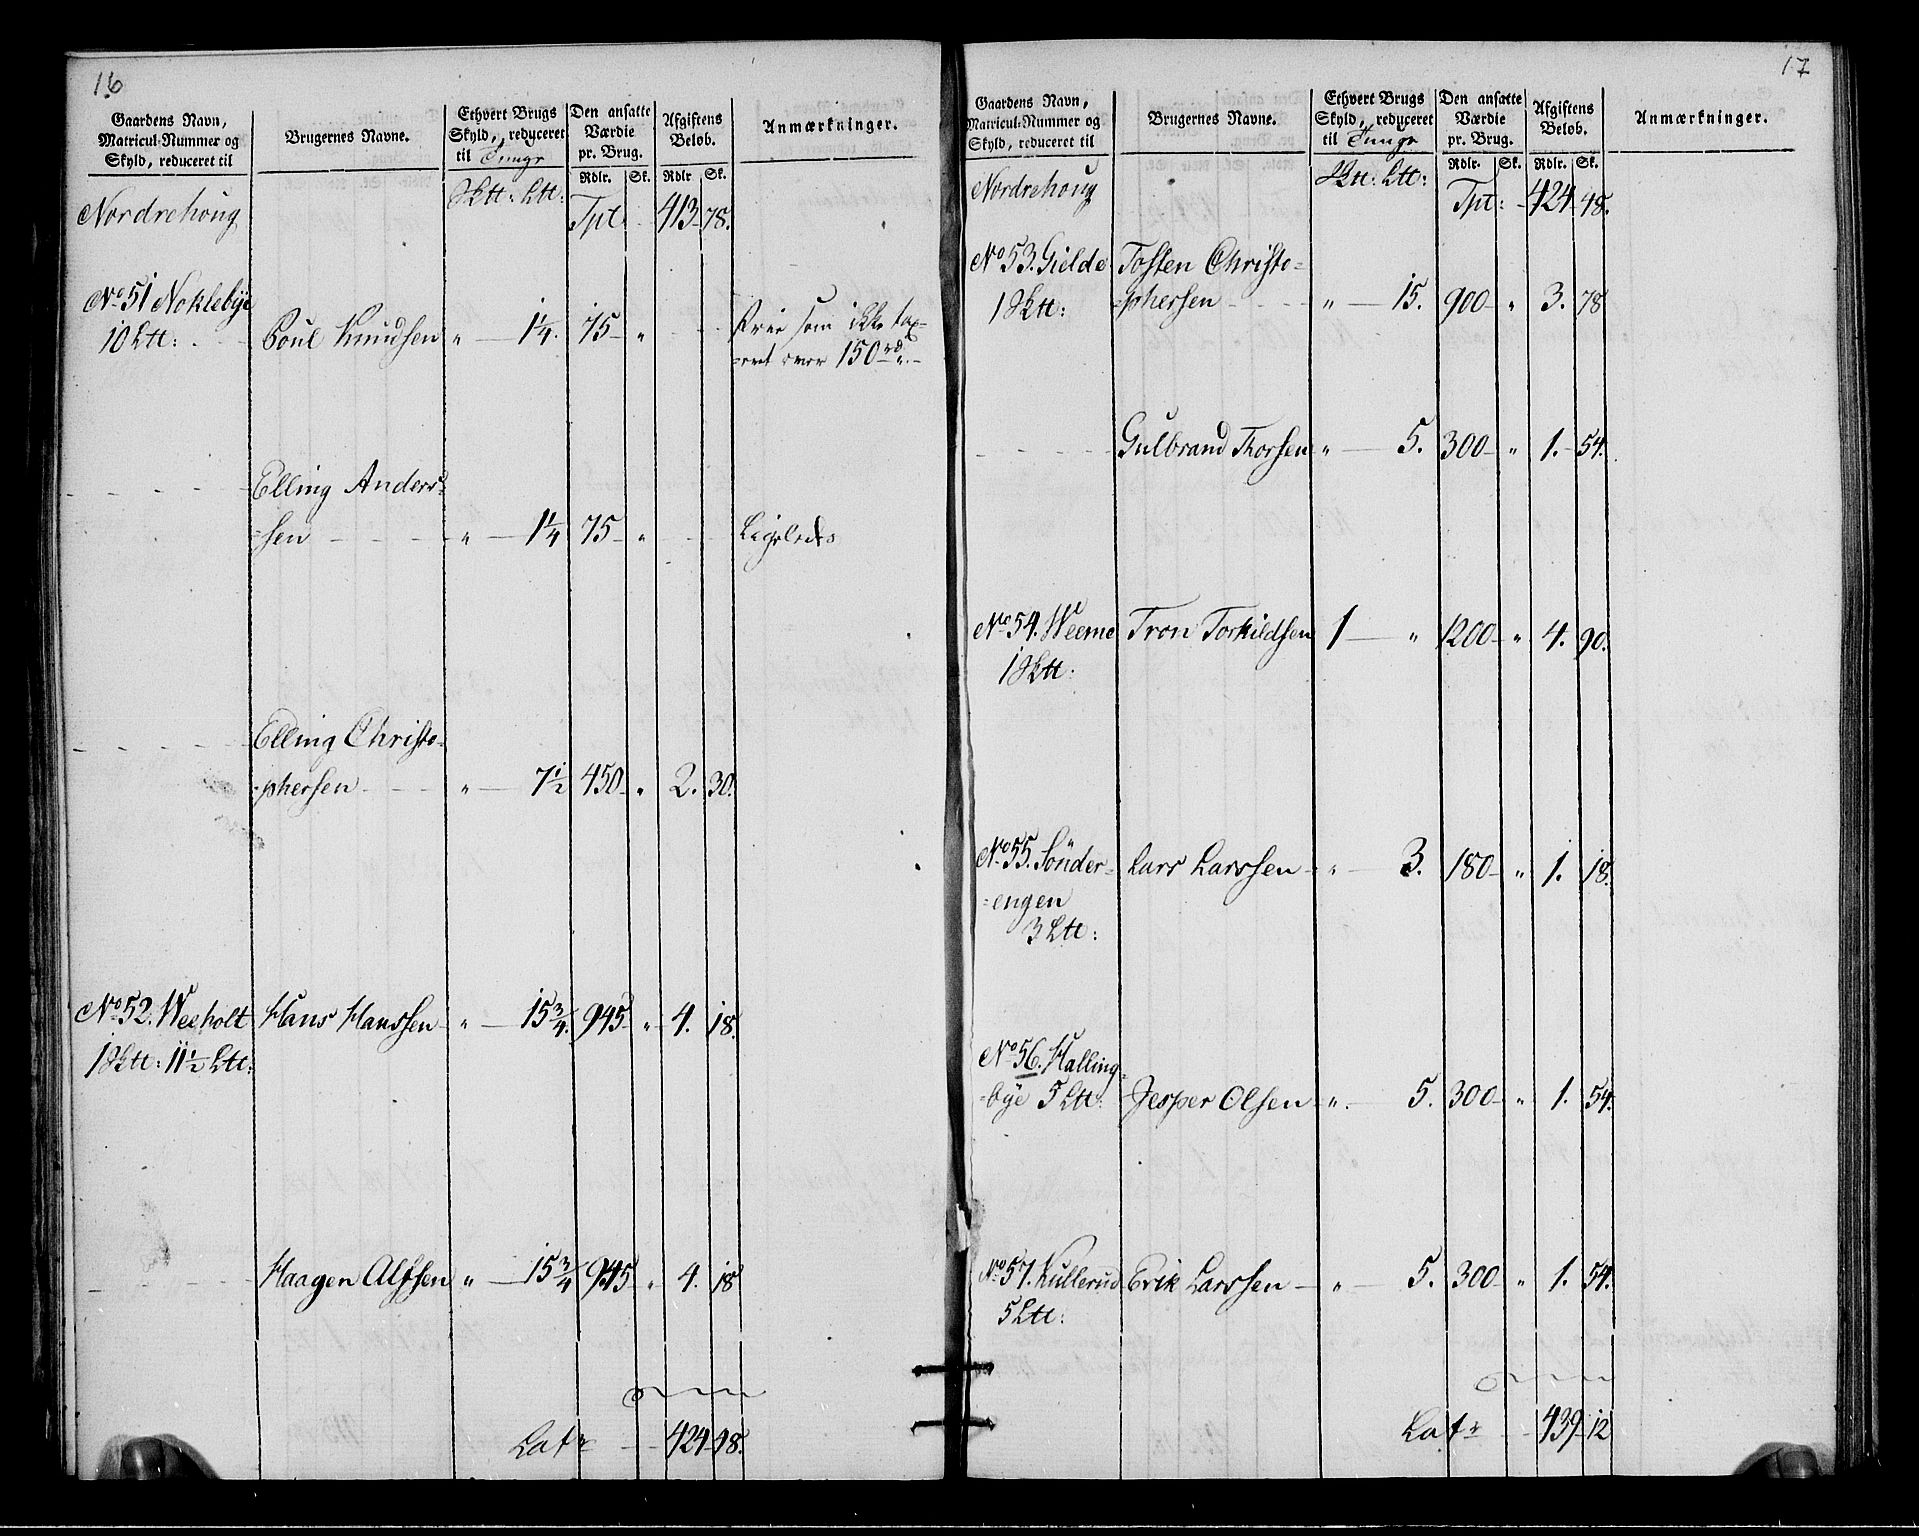 16
Gaardens Navn, Matricul-Nummer og Skyld, reduceret til
Brugernes Navne.
Ethvert Brugs Skyld, reduceret til Tunge
Den ansatte Værdie pr. Brug.
Afgiftens Beløb.
Anmærkninger.
Rdlr. Sk. Rdlr Sk.
Nordrehoug Sktt: Ltt: Tpt 413 78.
No 51 Noklebye
10 Ltt: Poul Knudsen " 1¼. 75 " Frie som ikke tax=
=eret over 150 rd.
Elling Anders=
=sen " 1¼ 75 " Ligeledes
Elling Christo=
=phersen " 7½ 450 " 2. 30.
No 52. Weeholt Hans Hanssen " 15¾. 945 " 4. 18.
1 Sktt: 11½ Ltt:
Haagen Alfsen " 15¾ 945 " 4. 18
Latr 424 48.
17
Gaardens Navn, Matricul-Nummer og Skyld, reduceret til
Brugernes Navne.
Ethvert Brugs Skyld, reduceret til Tunge
Den ansatte Værdie pr. Brug.
Afgiftens Beløb.
Anmærkninger.
Rdlr. Sk. Rdlr. Sk.
Nordrehoug Sktt: Ltt: Tpt: 424 48.
No 53. Gielde Tosten Christo=
1 Sktt: =phersen " 15. 900 " 3. 78
Gulbrand Thorsen " 5. 300 " 1. 54.
No 54. Weeme Tron Torkildsen 1 " 1200 " 4. 90.
1 Sktt:
No 55. Sönder= Lars Larssen " 3. 180 " 1. 18.
=engen
3 Ltt:
No 56. Halling=
=bye 5 Ltt: Jesper Olsen " 5. 300 " 1. 54.
No 57. Kullerud Erik Larssen " 5. 300 " 1. 54.
5 Ltt:
Latr 439 12